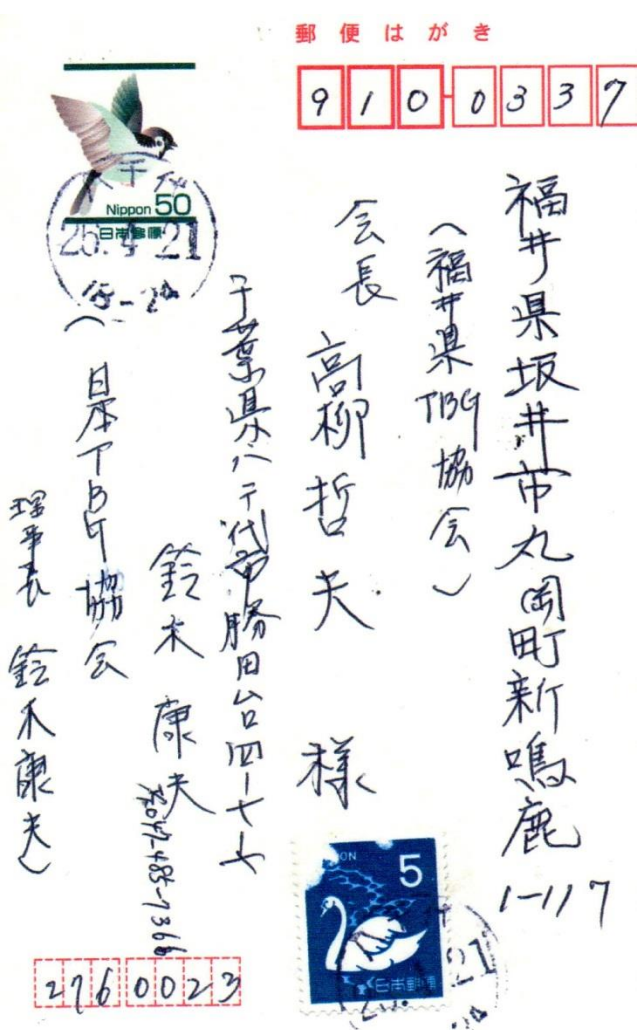 郵便はがき
910-0337
福井県坂井市丸岡町新鳴鹿
1-117
(福井県TBG協会)
会長
高柳哲夫
様
Nippon 50
日本郵便
25.4.21
千葉県八千代市勝田台四-十七
鈴木康夫
047-485-7366
(日本TBG協会
理事長 鈴木康夫)
2760023
NIPPON 5
日本郵便